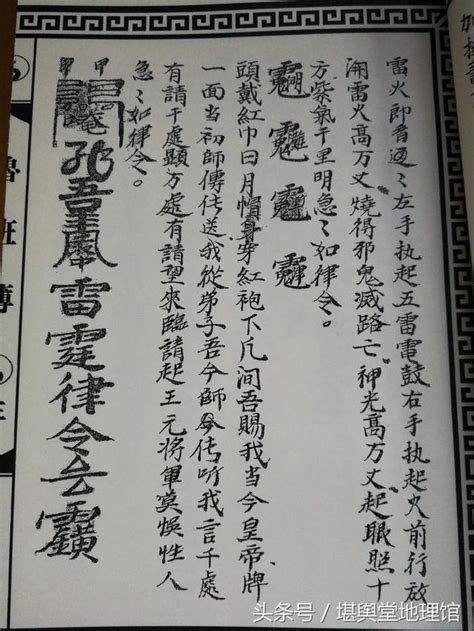 雷火即者週〻左手执起五雷電鼓右手执起火前行放
淛雷火高万丈燒得邪鬼滅路亡神光高万丈起眼照十
方紫氣千里明急〻如律令。
頭戴紅巾日月帽身穿紅袍下凡间吾賜我当今皇帝牌
一面当初師傳传送我從弟子吾今師今传听我言千處
有請千處顯方處有請望來臨請起王元将軍莫悞性人
急〻如律令。
吾奉
雷霆律令
魯班
头条号／堪舆堂地理馆